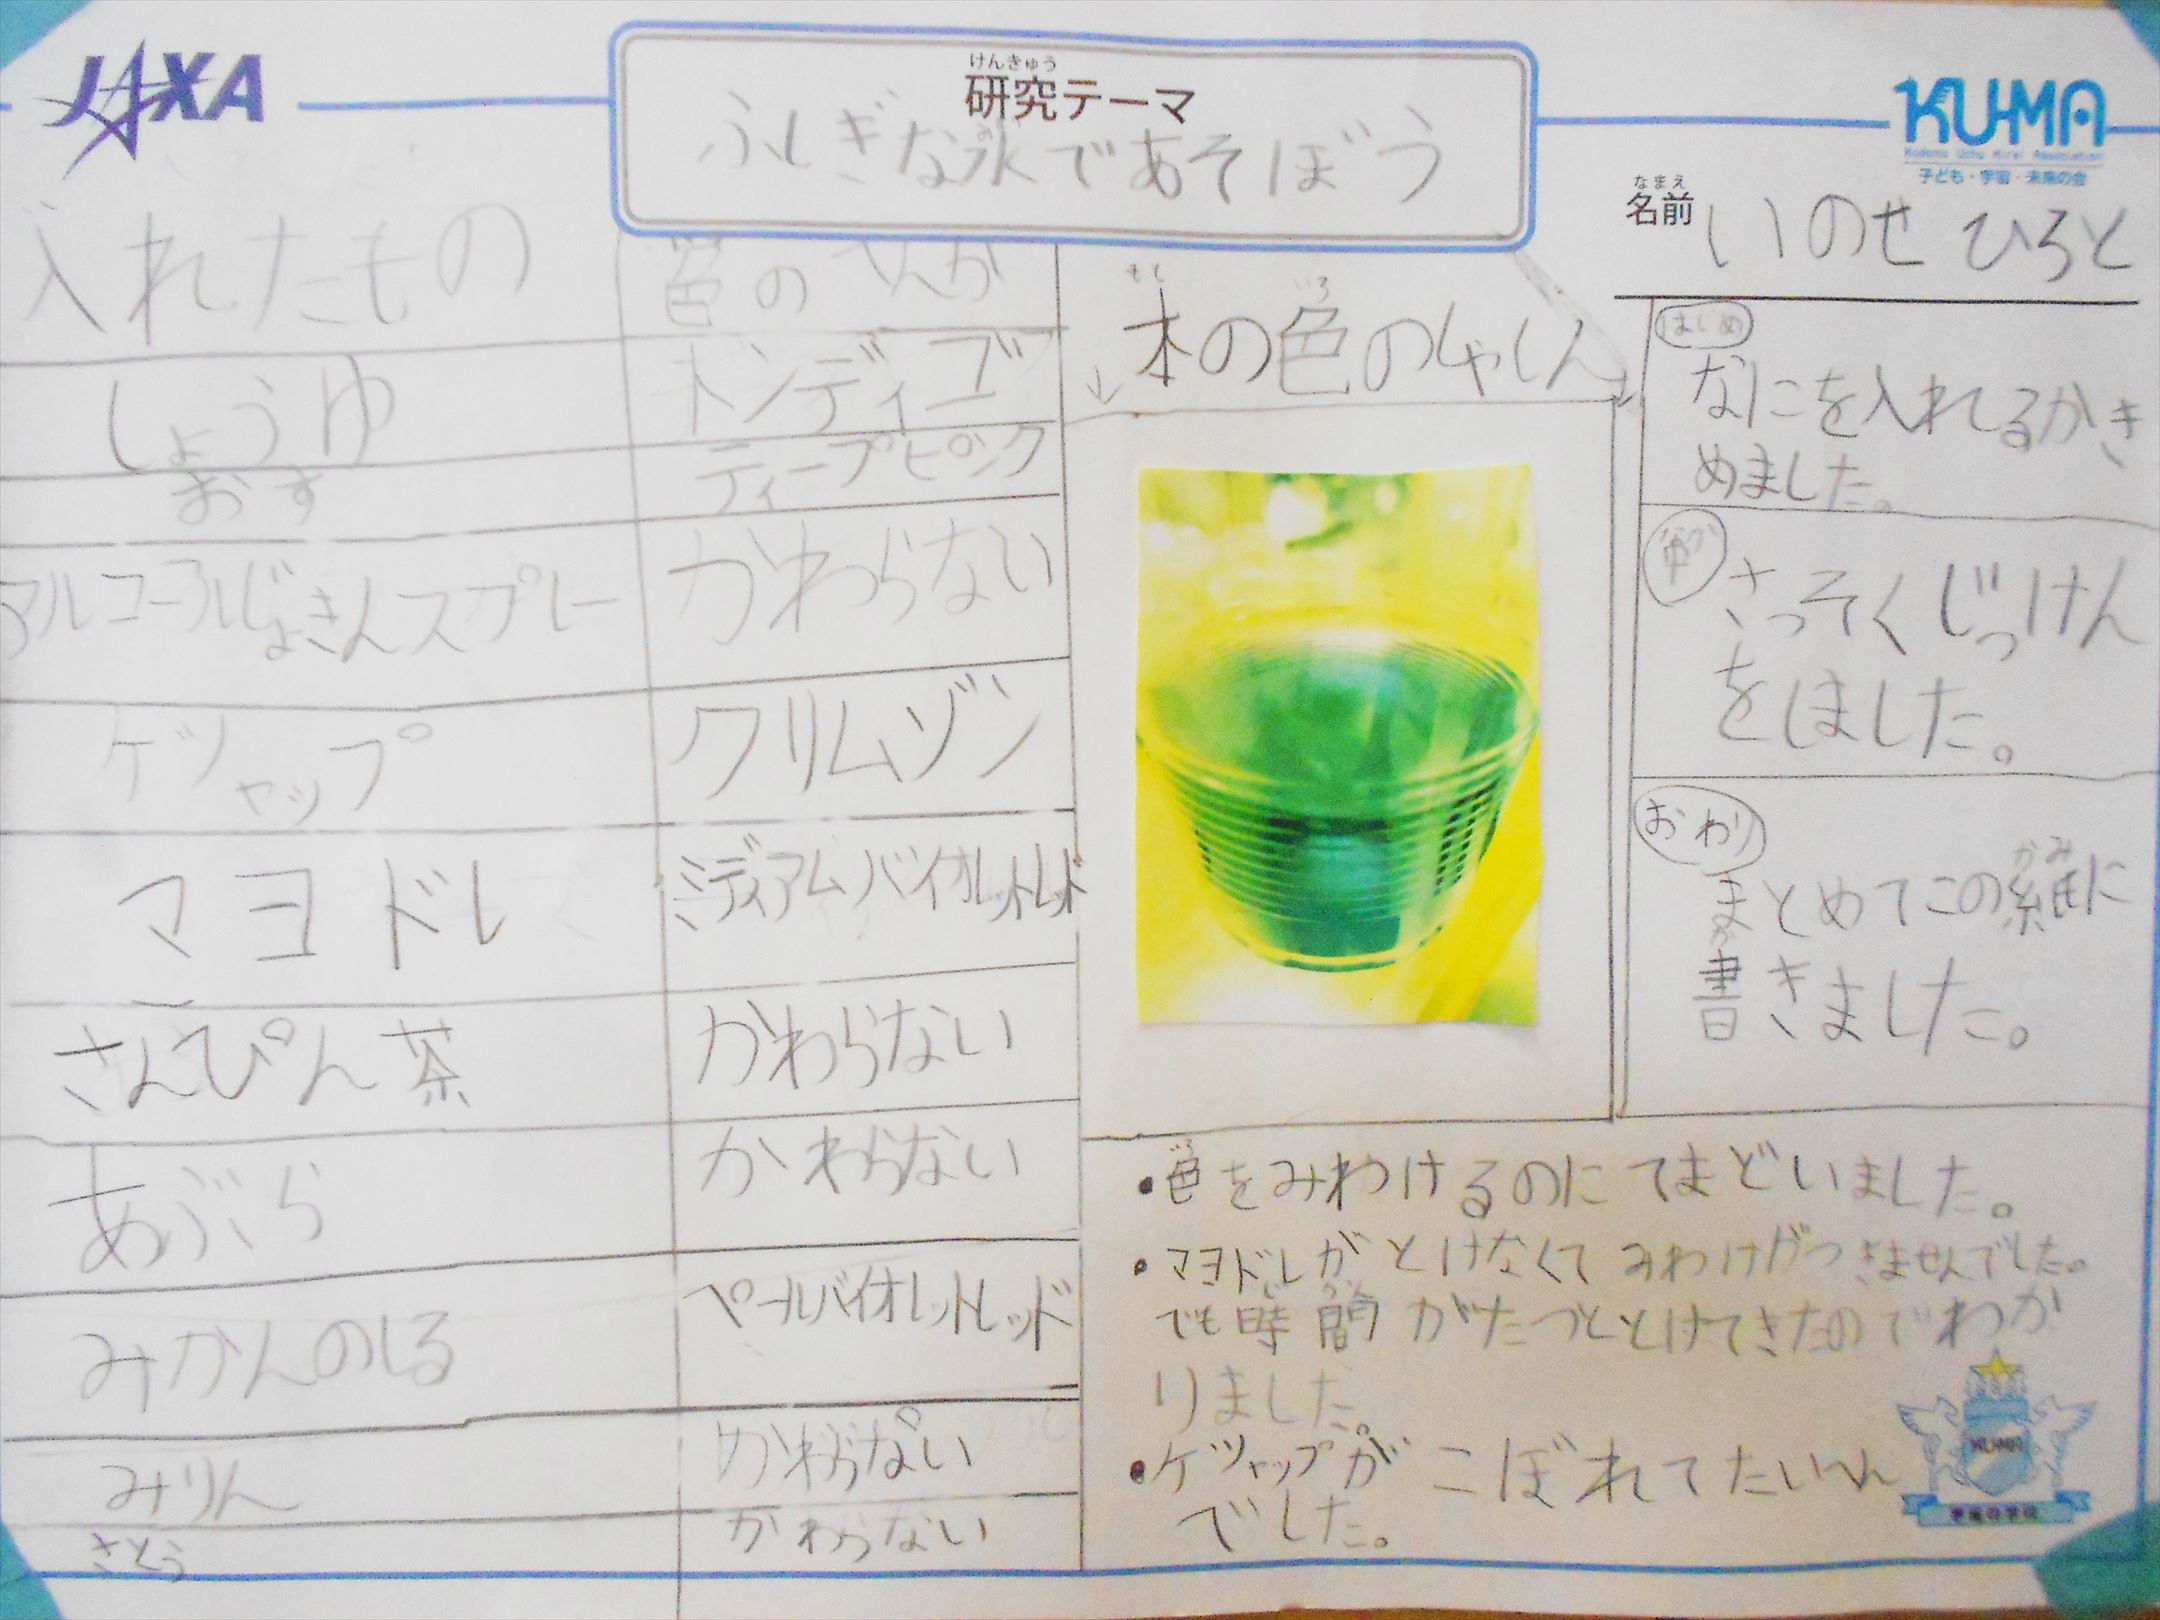 JAXA
けんきゅう
研究テーマ
ふしぎな氷であそぼう
KUMA
Kodomo Uchu Mirai Association
子ども・宇宙・未来の会
なまえ
名前 いのせ ひろと
入れたもの 色のへんか
しょうゆ ドンディゴ
おす ディープピンク
アルコールじょきんスプレー かわらない
ケツャップ クリムゾン
マヨドレ ミディアムバイオレットレッド
さんぴん茶 かわらない
あぶら かわらない
みかんのしる ペールバイオレットレッド
みりん かわらない
さとう かわらない
もと いろ
本の色のしゃしん
はじめ
なにを入れるかき
めました。
なか
中
さっそくじっけん
をしました。
おわり
かみ
まとめてこの紙に
か
書きました。
いろ
・色をみわけるのにてまどいました。
・マヨドレがとけなくてみわけがつきませんでした。
じ かん
でも時間がたつととけてきたのでわか
りました。
・ケツャップがこぼれてたいへん
でした。
KUMA
宇宙の学校